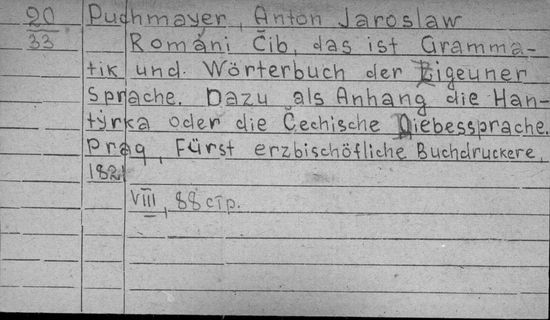 20 Puchmayer, Anton Jaroslaw
33 Románi Čib, das ist Gramma-
tik und Wörterbuch der Zigeuner
Sprache. Dazu als Anhang die Han-
týrka oder die Čechische Diebessprache.
Prag, Fürst erzbischöfliche Buchdruckere,
1821
VIII, 88 стр.